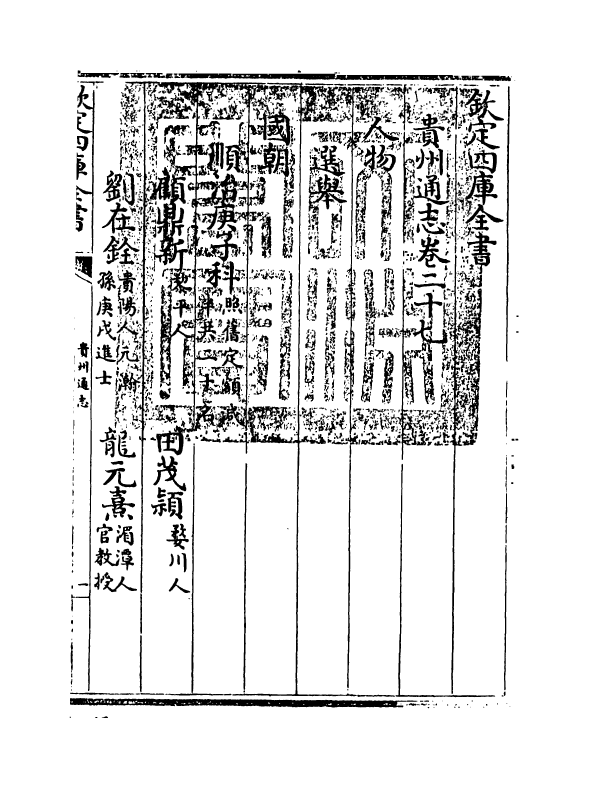 欽定四庫全書
貴州通志卷二十七
人物
選舉
國朝
順治庚子科照舊定額減半共二十名
顧鼎新黎平人 田茂穎婺川人
劉在銓貴陽人元翰孫庚戌進士 龍元熹湄潭人官教授
欽定四庫全書 貴州通志 一